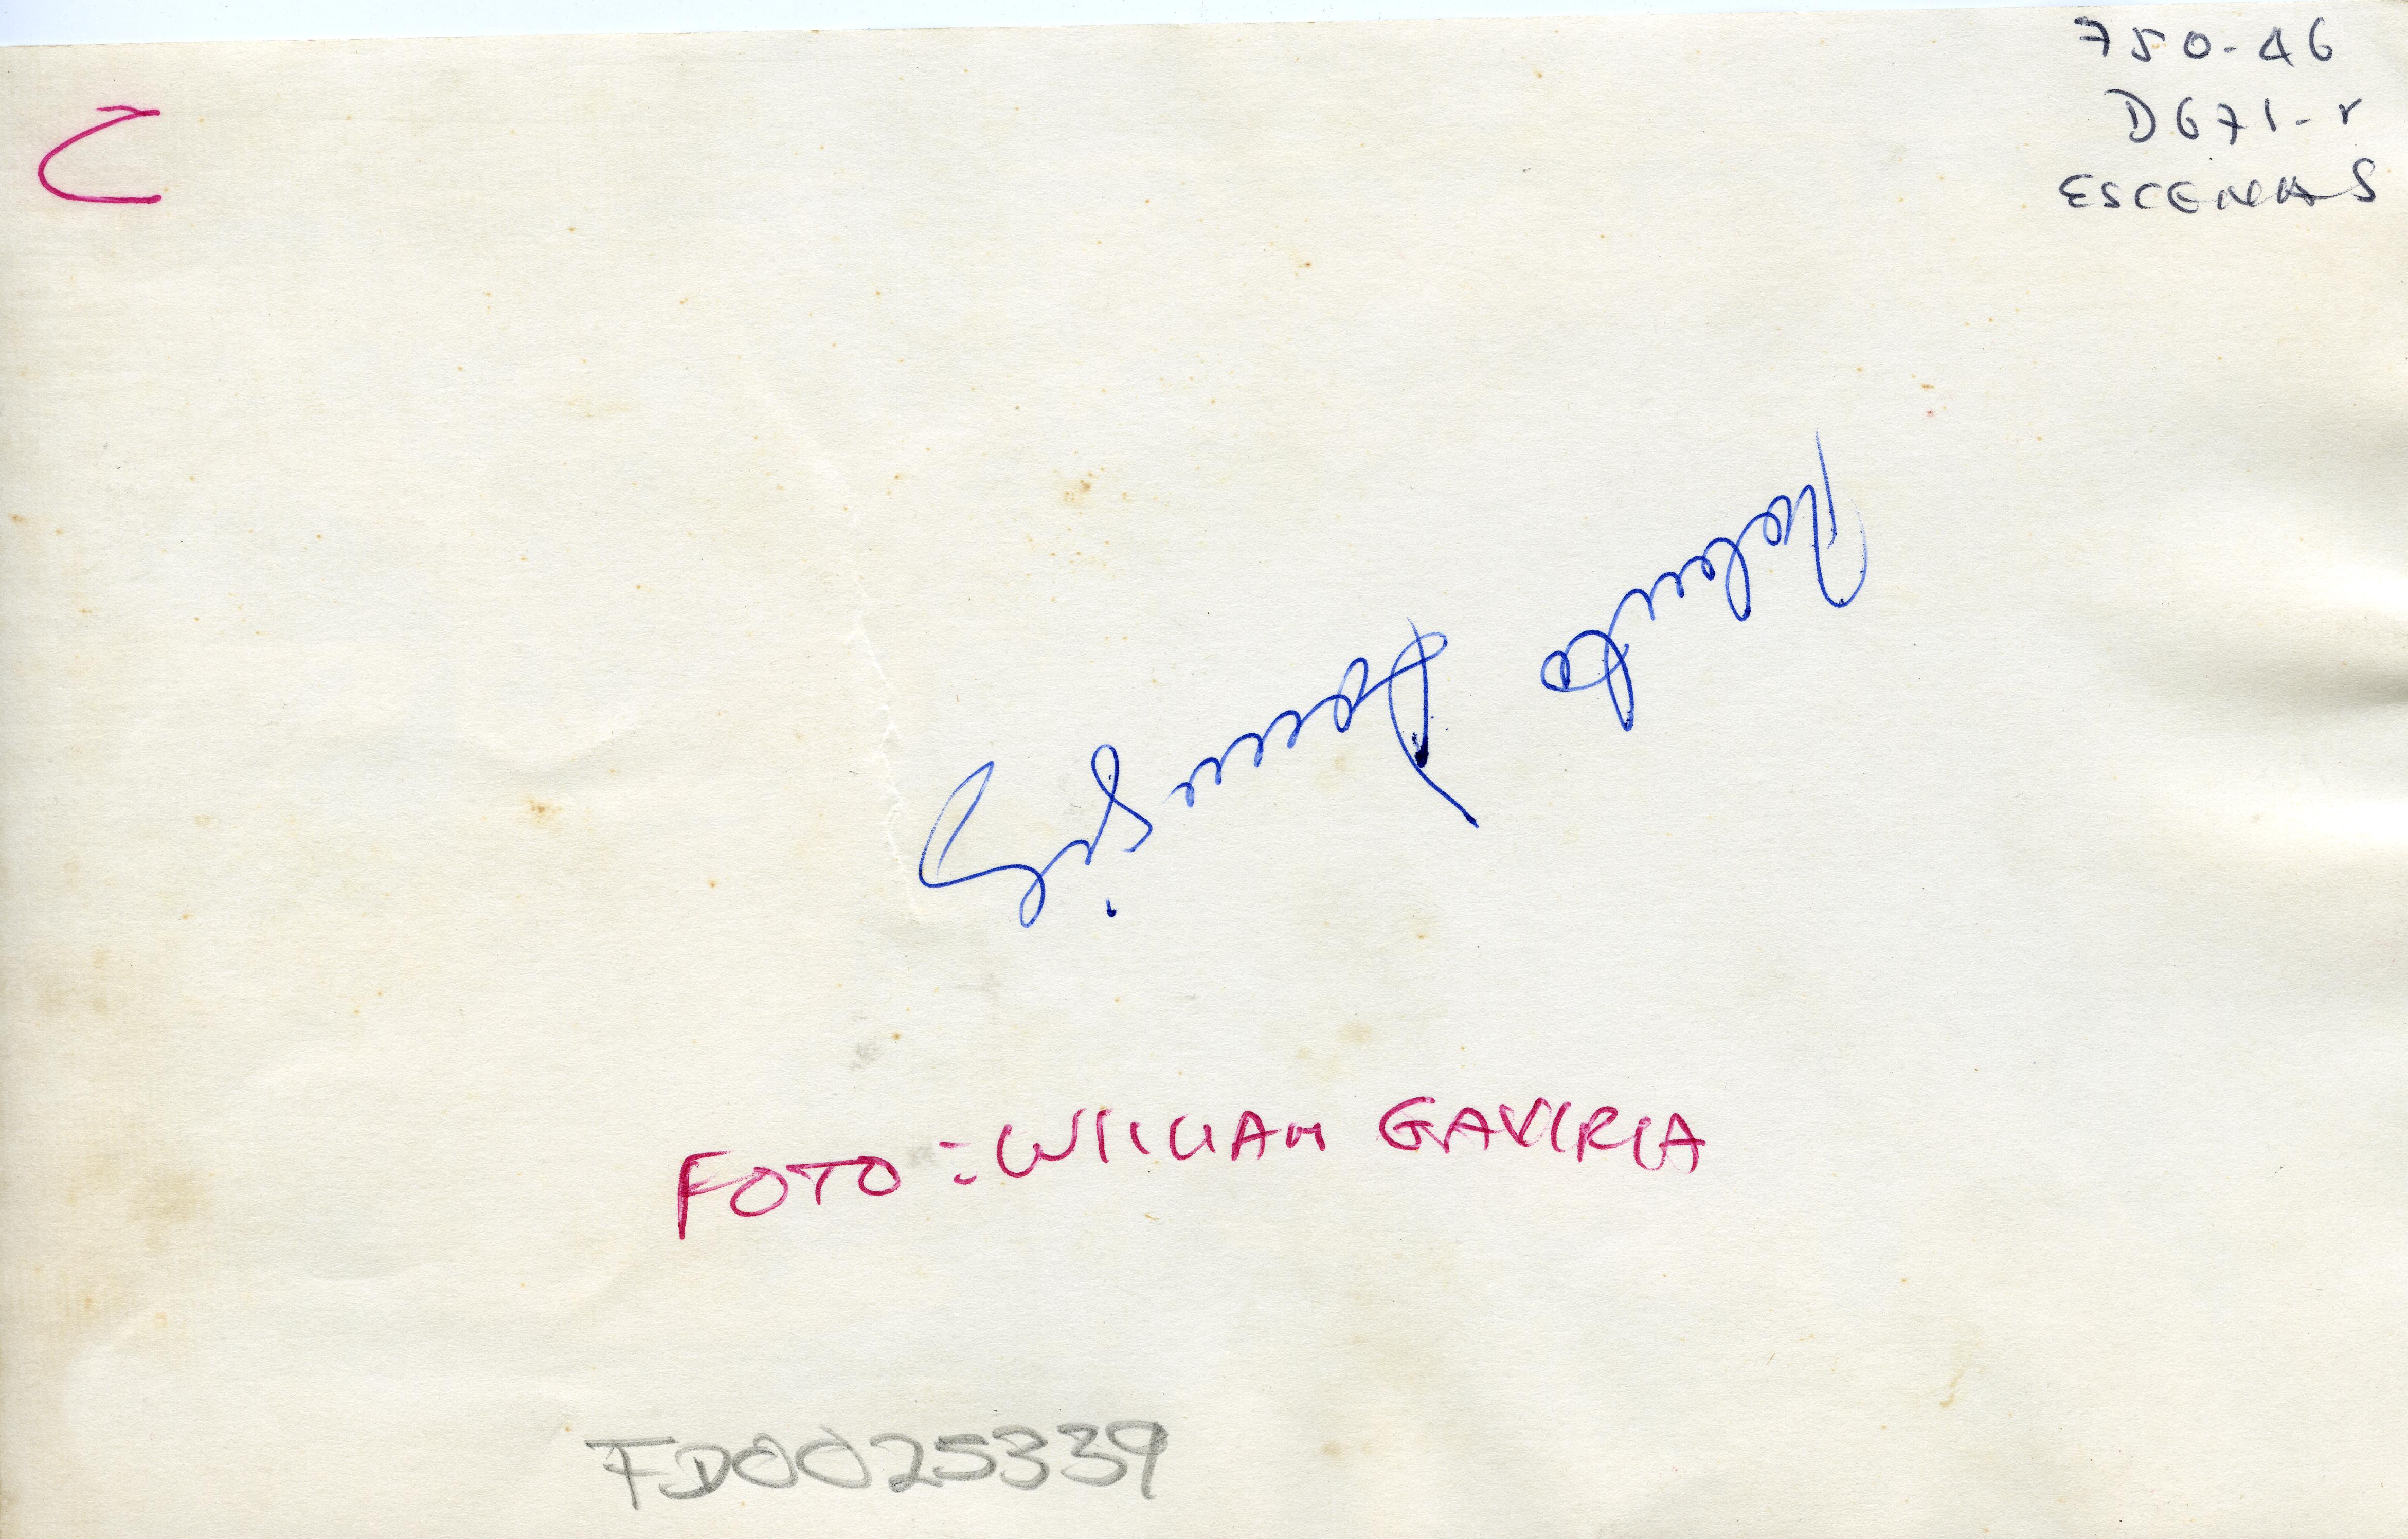 750-46
D671-r
ESCENAS
C
Roberto Dominguez
FOTO: WILLIAM GAVIRIA
FD0025339